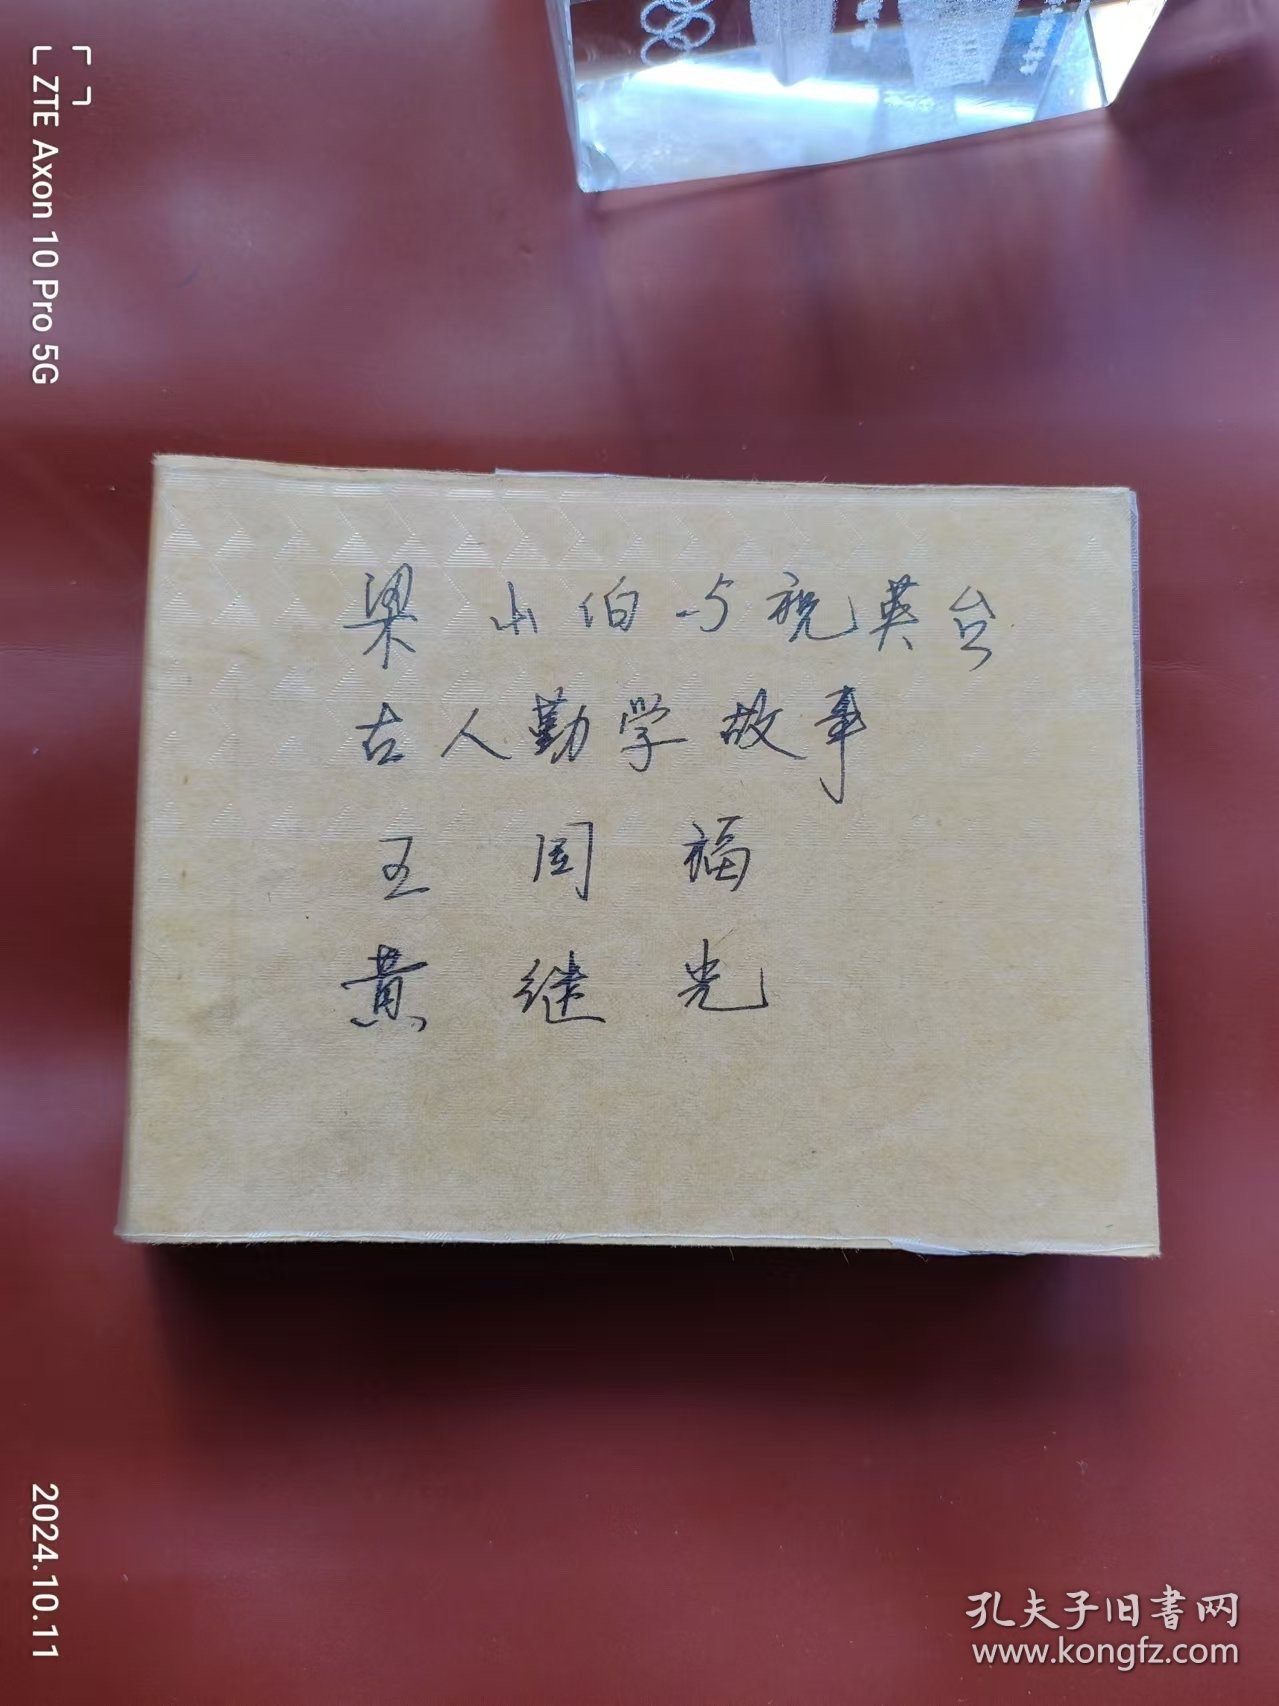 ZTE Axon 10 Pro 5G
梁山伯与祝英台
古人勤学故事
王国福
黄继光
2024.10.11
孔夫子旧书网
www.kongfz.com